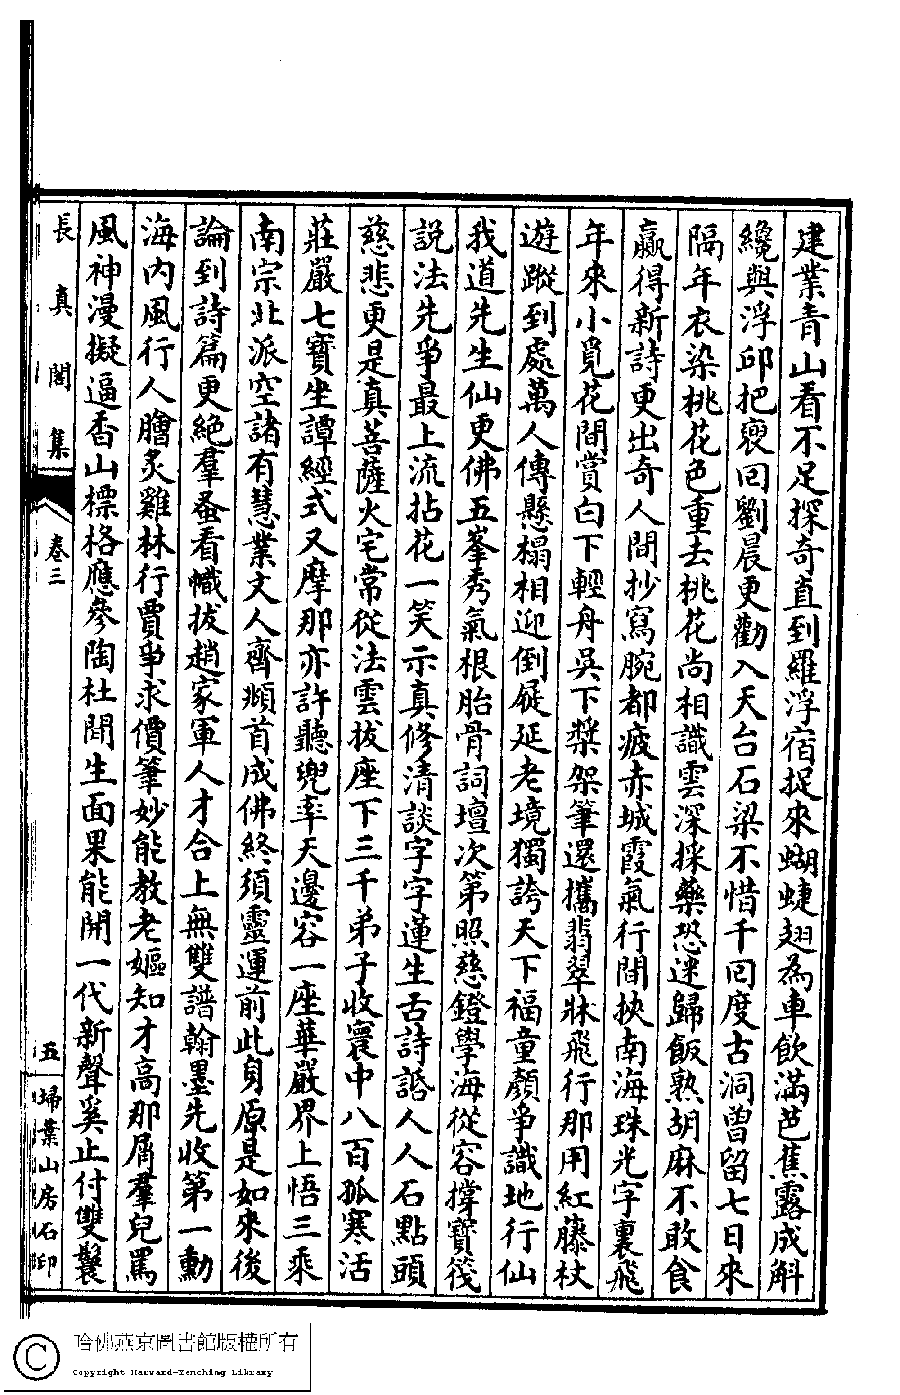 建業青山看不足探奇直到羅浮宿捉來蝴蜨翅為車飲滿芭蕉露成斛
纔與浮邱把褎回劉晨更勸入天台石梁不惜千回度古洞曾留七日來
隔年衣染桃花色重去桃花尚相識雲深採藥恐迷歸飯熟胡麻不敢食
贏得新詩更出奇人間抄寫腕都疲赤城霞氣行間挾南海珠光字裏飛
年來小覓花間賞白下輕舟吳下槳架筆還攜翡翠牀飛行那用紅藤杖
遊蹤到處萬人傳懸榻相迎倒屣延老境獨誇天下福童顏爭識地行仙
我道先生仙更佛五峯秀氣根胎骨詞壇次第照慈鐙學海從容撐寶筏
説法先爭最上流拈花一笑示真修清談字字蓮生舌詩諙人人石點頭
慈悲更是真菩薩火宅常從法雲拔座下三千弟子收寰中八百孤寒活
莊嚴七寶坐譚經式又摩那亦許聽兜率天邊容一座華嚴界上悟三乘
南宗北派空諸有慧業文人齊頫首成佛終須靈運前此身原是如來後
論到詩篇更絕羣蚤看幟拔趙家軍人才合上無雙譜翰墨先收第一勳
海内風行人膾炙雞林行賈爭求價筆妙能教老嫗知才高那屑羣兒罵
風神漫擬逼香山標格應參陶杜間生面果能開一代新聲奚止付雙鬟
長真閣集
卷三
五
埽葉山房石印
哈佛燕京圖書館版權所有
Copyright Harvard-Yenching Library